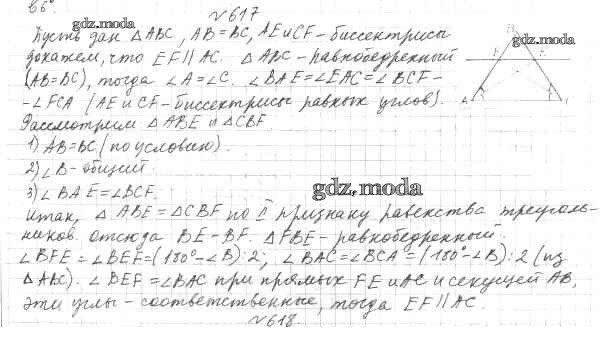 66°.
№617
gdz.moda
Пусть дан △ABC, AB=BC, AE и CF - биссектрисы
докажем, что EF∥AC. △ABC - равнобедренный
(AB=BC), тогда ∠A=∠C. ∠BAE=∠EAC=∠BCF-
-∠FCA (AE и CF - биссектрисы равных углов).
Рассмотрим △ABE и △CBF.
1) AB=BC (по условию).
2) ∠B - общий.
3) ∠BAE=∠BCF.
Итак, △ABE=△CBF по II признаку равенства треуголь-
ников. Отсюда BE-BF. △FBE - равнобедренный.
∠BFE=∠BEF=(180°-∠B):2; ∠BAC=∠BCA=(180°-∠B):2 (из
△ABC). ∠BEF=∠BAC при прямых FE и AC и секущей AB,
эти углы - соответственные, тогда EF∥AC.
№618.
gdz.moda
B
gdz.moda
F E
A C